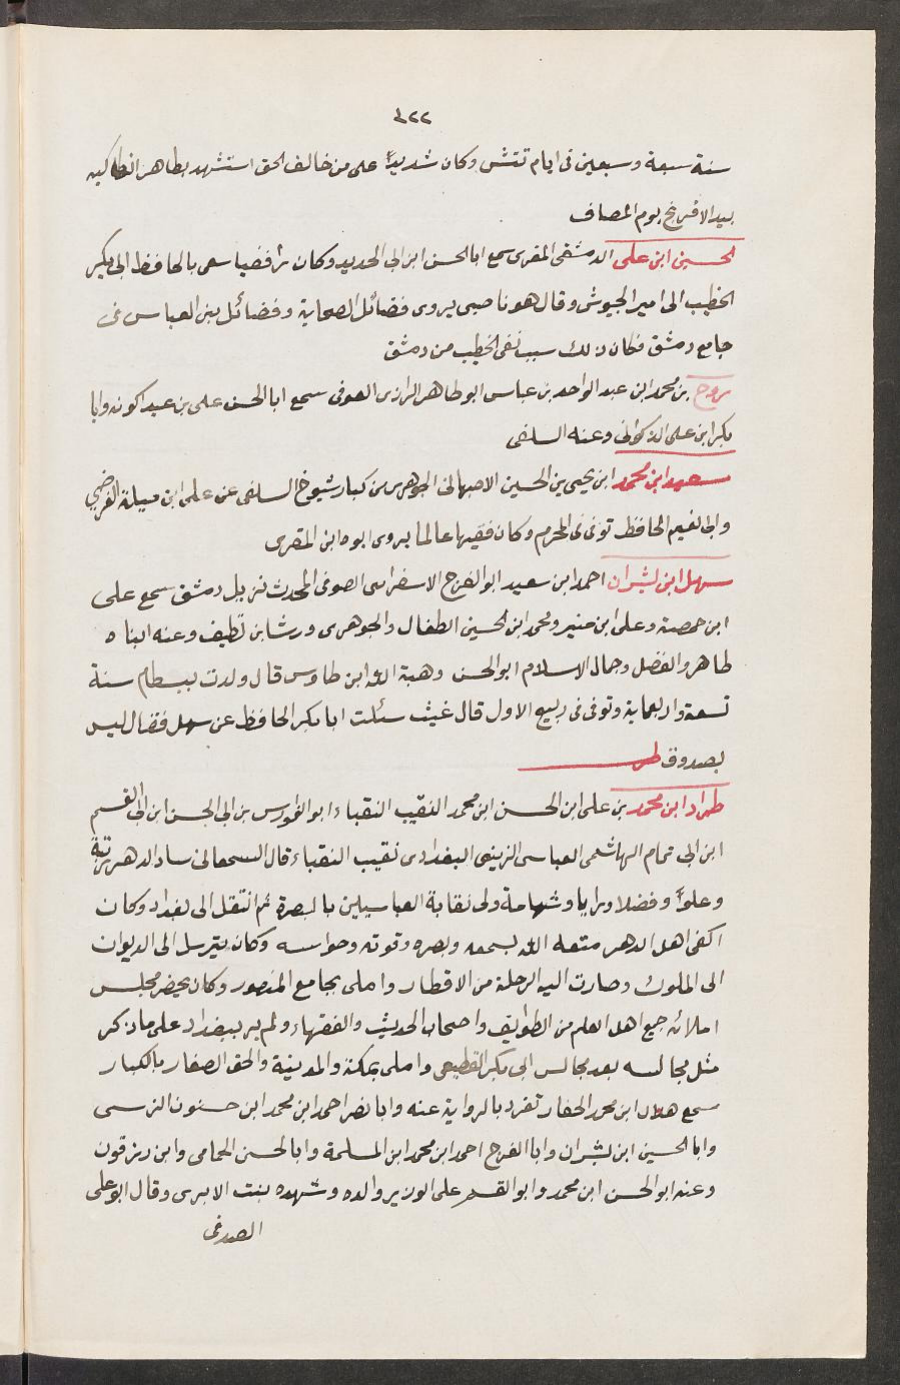 ٦٢٢
سنة سبعة وسبعين فى ايام تتش وكان شديدًا على من خالف الحق استشهد بظاهر انطاكيه
بيد الافرنج يوم المصاف
الحسين ابن على الدمشقى المقرى سمع ابا الحسن ابن ابى الحديد وكان رافضيا سعى بالحافظ ابى بكر
الخطيب الى امير الجيوش وقال هو ناصبى يروى فضائل الصحابة وفضائل بنى العباس فى
جامع دمشق فكان ذلك سبب نفى الخطيب من دمشق
روح بن محمد ابن عبد الواحد بن عباس ابو طاهر الرازى الصوفى سمع ابا الحسن على بن عبدكويه وابا
بكر ابن على الذكوانى وعنه السلفى
سعيد ابن محمد ابن يحيى بن الحسين الاصبهانى الجوهرى من كبار شيوخ السلفى عن على ابن ميلة الفرضى
وابى نعيم الحافظ توفى فى المحرم وكان فقيها عالما يروى ابوه ابن المقرى
سهل ابن بشران احمد ابن سعيد ابو الفرج الاسفراسى الصوفى المحدث نزيل دمشق سمع على
ابن حمصة وعلى ابن منير ومحمد ابن الحسين الطفال والجوهرى ورشا بن نظيف وعنه ابناه
طاهر والفضل وجمال الاسلام ابو الحسن وهبة الله ابن طاوس قال ولدت ببسطام سنة
تسعة واربعماية وتوفى فى ربيع الاول قال غيث سئلت ابا بكر الحافظ عن سهل فقال ليس
بصدوق طر
طراد ابن محمد بن على ابن الحسن ابن محمد النقيب النقباء ابو الفوارس بن ابى الحسن ابن ابى القسم
ابن ابى تمام الهاشمى العباسى الزينبى البغدادى نقيب النقباء قال السمعانى ساد الدهر رتبة
وعلوًا وفضلا ورايا وشهامة ولى نقابة العباسيين بالبصرة ثم انتقل الى بغداد وكان
اكفى اهل الدهر متعه الله بسمعه وبصره وقوته وحواسه وكان يترسل الى الديوان
الى الملوك وصارت اليه الرحلة من الاقطار واملى بجامع المنصور وكان يحضر مجلس
املائه جميع اهل العلم من الطوايف واصحاب الحديث والفقهاء ولم ير ببغداد على ماذكر
مثل مجالسه بعد مجالس ابى بكر القطيعى واملى بمكة والمدينة والحق الصغار بالكبار
سمع هلال ابن محمد الحفار تفرد بالرواية عنه وابا نصر احمد ابن محمد ابن حسنون النرسى
وابا الحسين ابن بشران وابا الفرج احمد ابن محمد ابن المسلمة وابا الحسن الحمامى وابن رزقون
وعنه ابو الحسن ابن محمد وابو القسم على الوزير والده وشهده بنت الابرى وقال ابو على
الصدفى